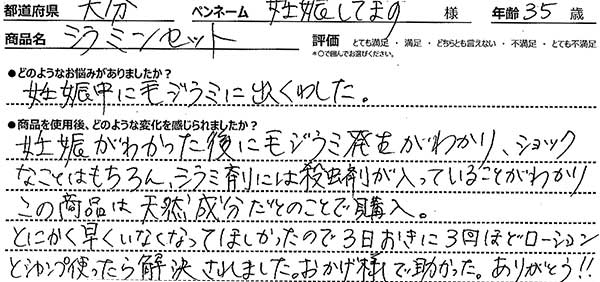 都道府県 大分 ペンネーム 妊娠してます 様 年齢 35 歳
商品名 シラミンセット 評価 とても満足・満足・どちらとも言えない・不満足・とても不満足
*○で囲んでお選びください。
●どのようなお悩みがありましたか?
妊娠中に毛ジラミに出くわした。
●商品を使用後、どのような変化を感じられましたか?
妊娠がわかった後に毛ジラミ発生がわかり、ショック
なことはもちろん、シラミ剤には殺虫剤が入っていることがわかり
この商品は天然成分だとのことで購入。
とにかく早くいなくなってほしかったので3日おきに3回ほどローション
とシャンプ使ったら解決されました。おかげ様で助かった。ありがとう!!